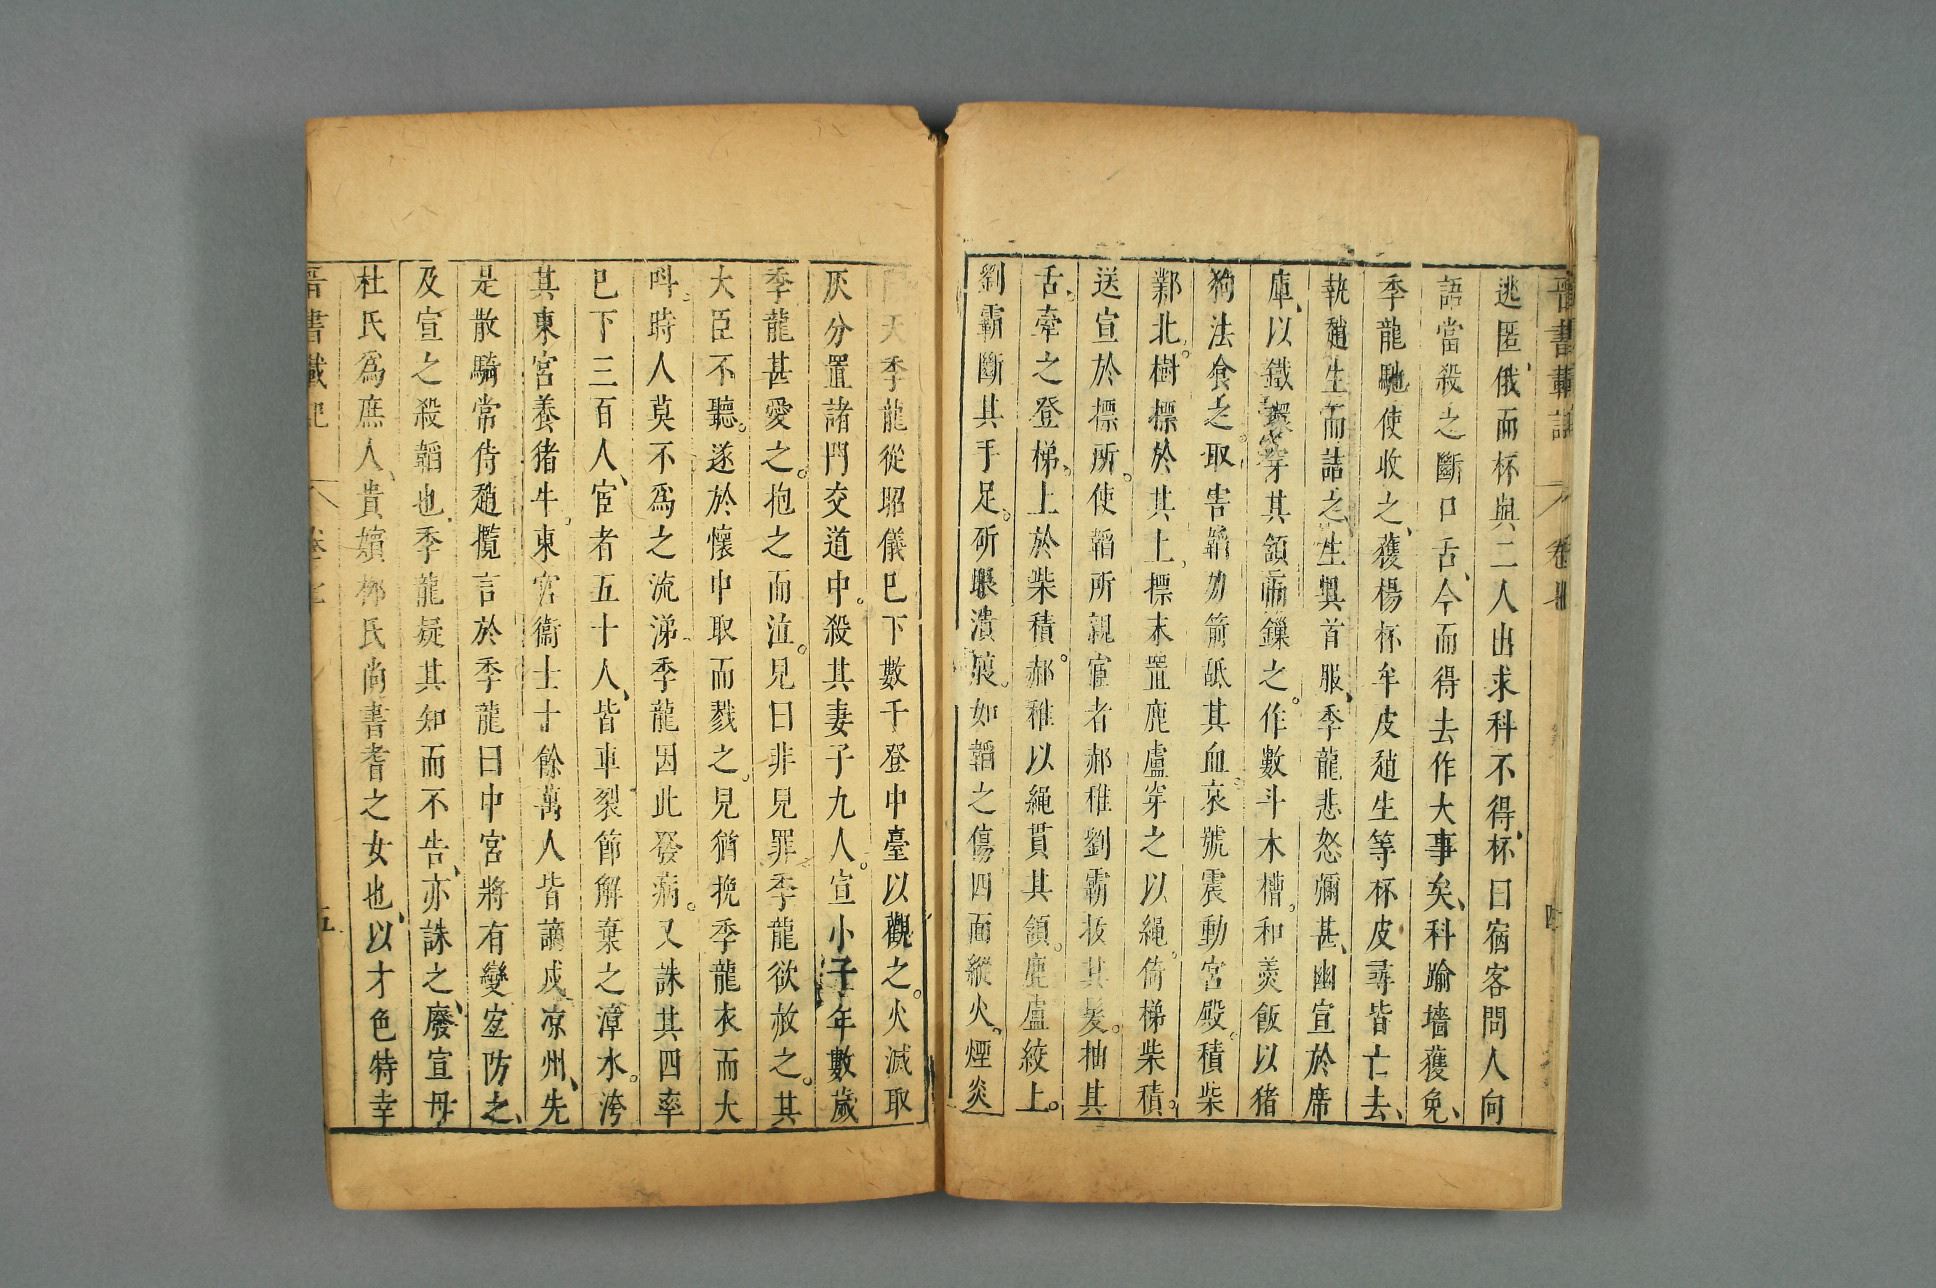 晉書載記 卷七 四
逃匿俄而杯與二人出求科不得杯曰宿客問人向
語當殺之斷口舌今而得去作大事矣科踰墻獲免
季龍馳使收之獲楊杯牟皮趙生等杯皮尋皆亡去
執趙生而詰之生具首服季龍悲怒彌甚幽宣於席
庫以鐵環穿其頷而鏁之作數斗木槽和羹飯以猪
狗法食之取害韜刀箭舐其血哀號震動宮殿積柴
鄴北樹標於其上標末置鹿盧穿之以繩倚梯柴積
送宣於標所使韜所親宦者郝稚劉霸拔其髮抽其
舌牽之登梯上於柴積郝稚以繩貫其頷鹿盧絞上
劉霸斷其手足斫眼潰腸如韜之傷四面縱火煙炎
天季龍從昭儀巳下數千登中臺以觀之火滅取
灰分置諸門交道中殺其妻子九人宣小子年數歲
季龍甚愛之抱之而泣兒曰非兒罪季龍欲赦之其
大臣不聽遂於懷中取而戮之兒猶挽季龍衣而大
呌時人莫不爲之流涕季龍因此發病又誅其四率
巳下三百人宦者五十人皆車裂節解棄之漳水洿
其東宮養猪牛東宮衞士十餘萬人皆謫戍凉州先
是散騎常侍趙攬言於季龍曰中宮將有變宜防之
及宣之殺韜也季龍疑其知而不告亦誅之廢宣母
杜氏爲庶人貴嬪柳氏尚書耆之女也以才色特幸
晉書載記 卷七 五